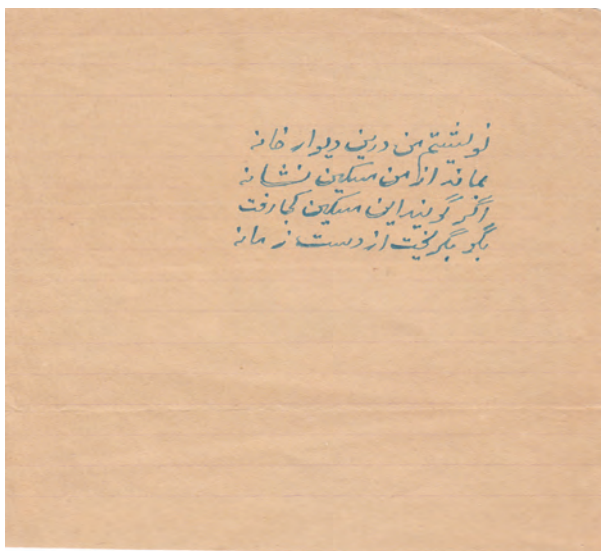 نوشتم من درین دیوار خانه
بماند از من مسکین نشانه
اگر گویند این مسکین کجا رفت
بگو بگریخت از دست زمانه